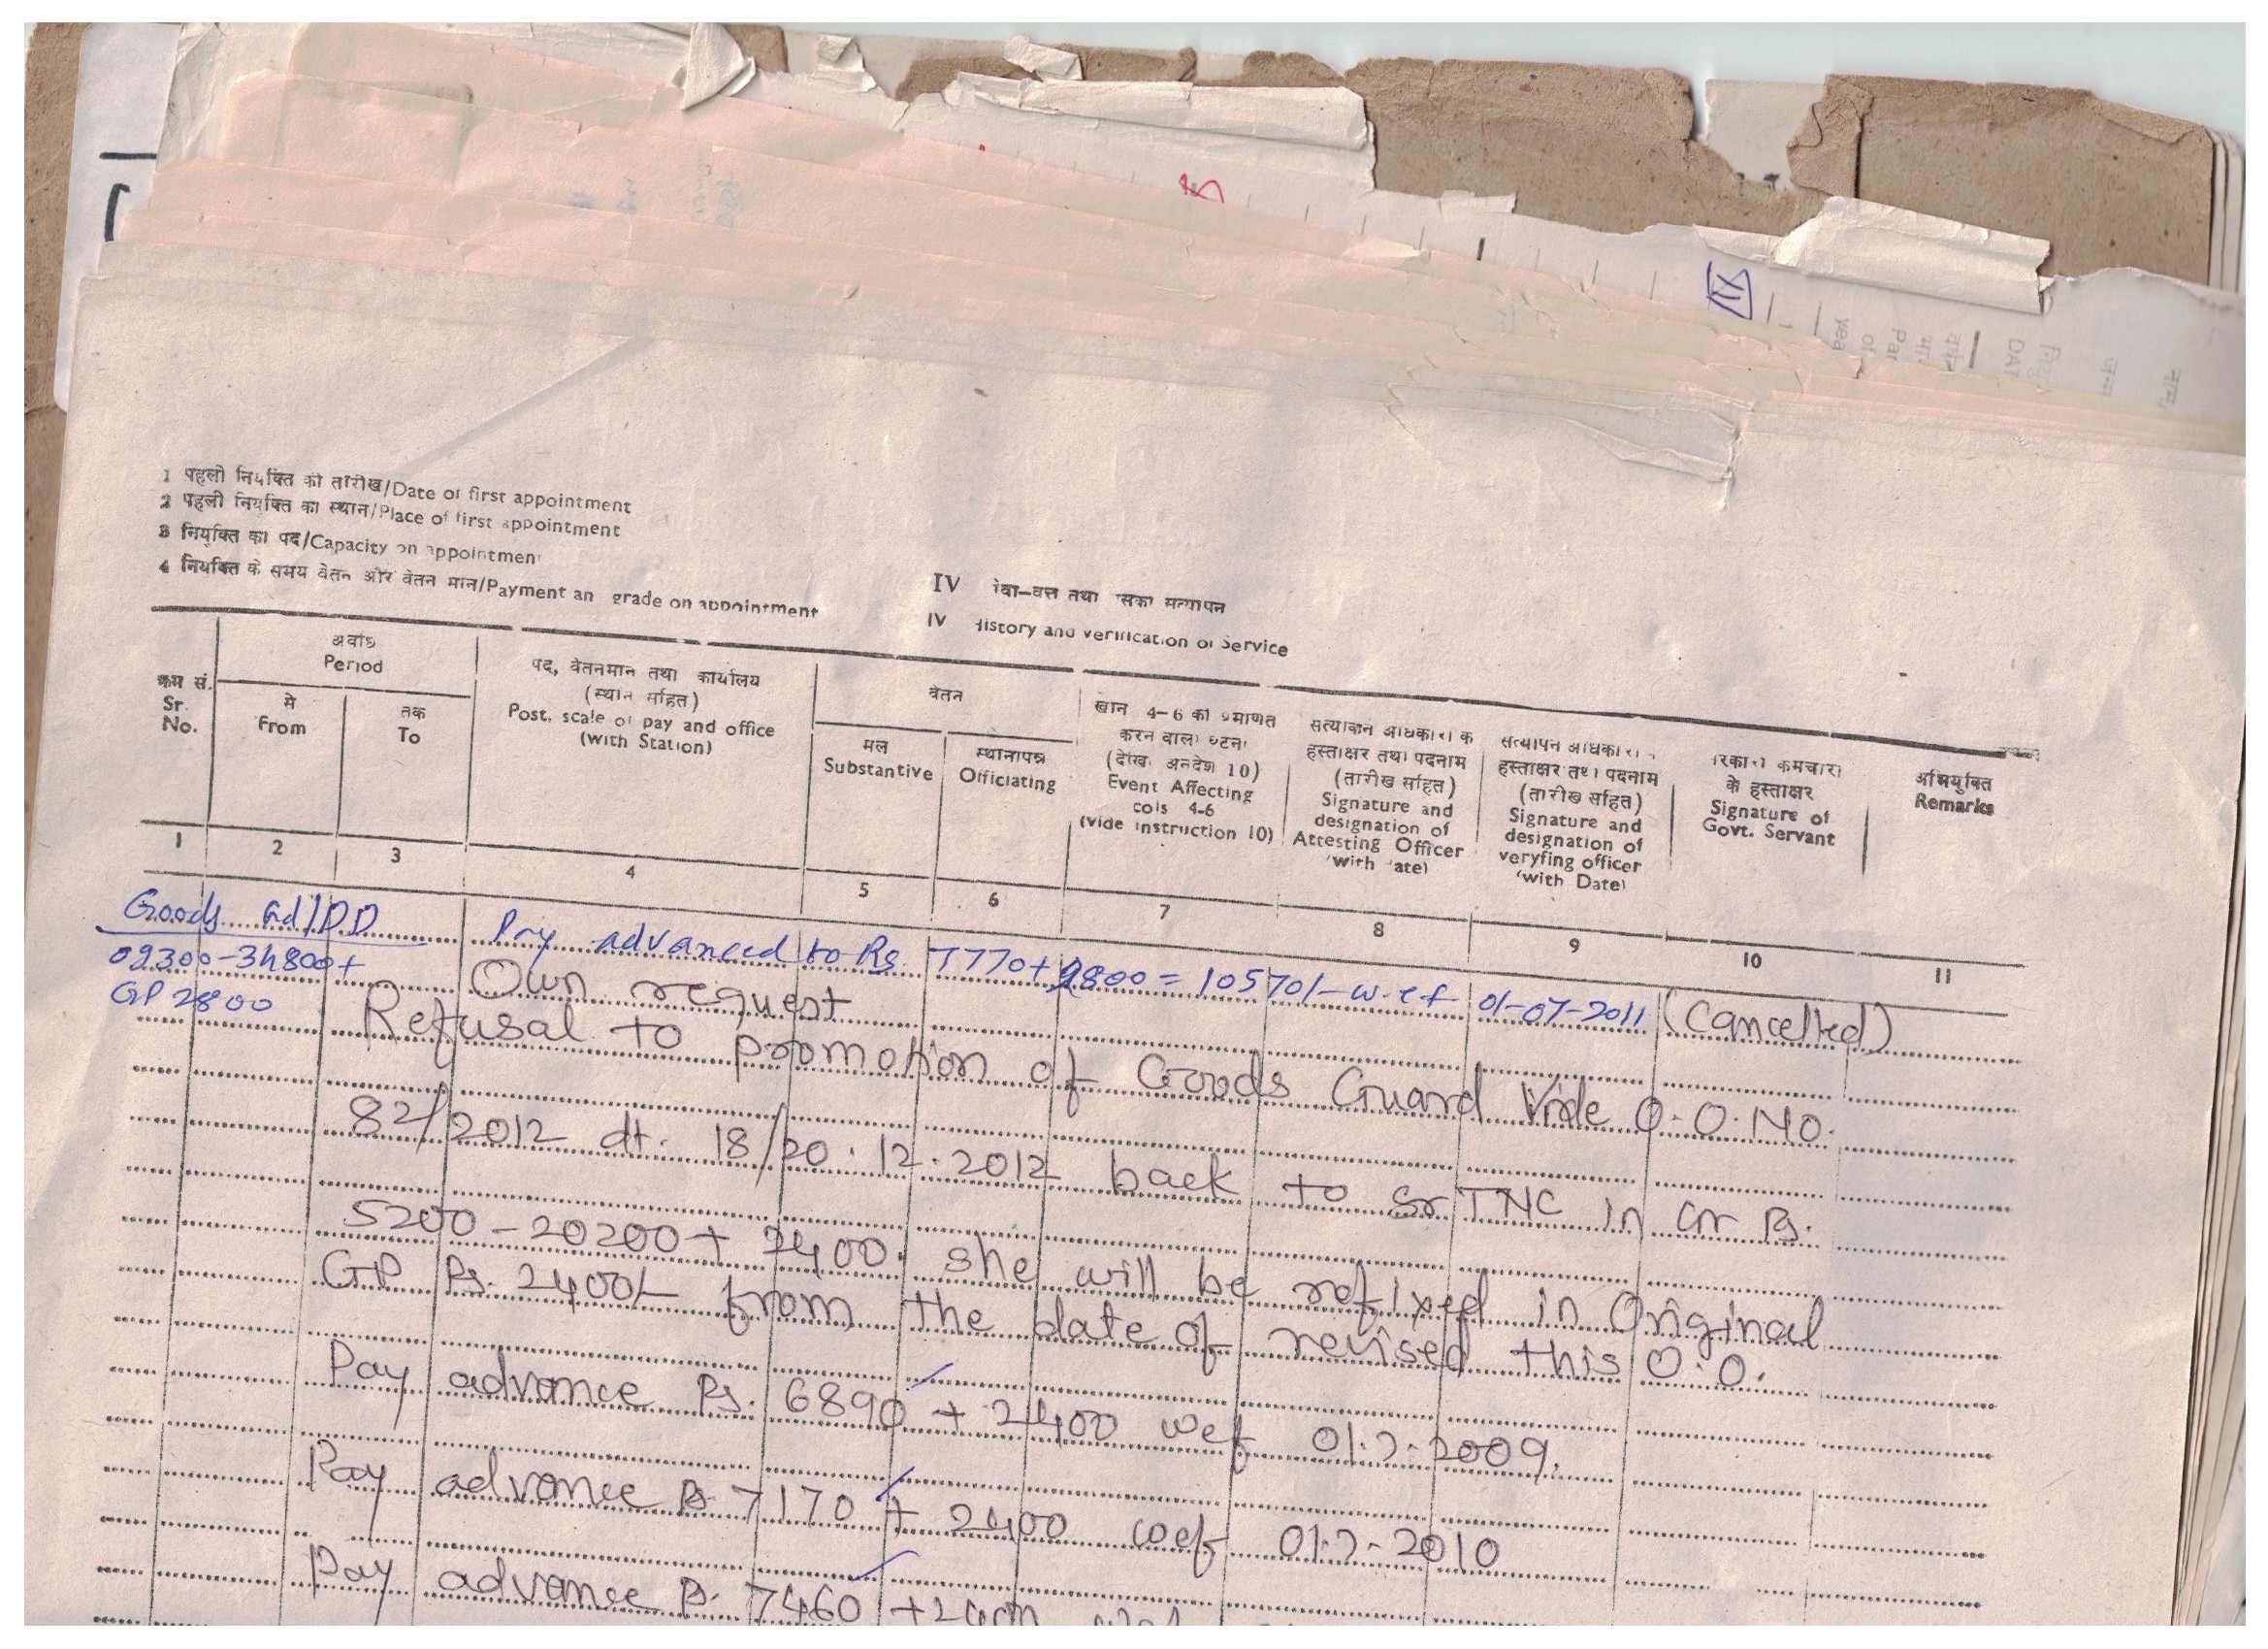 1 पहली नियुक्ति की तारीख/Date of first appointment
2 पहली नियुक्ति का स्थान/Place of first appointment
3 नियुक्ति का पद/Capacity on appointment
4 नियुक्ति के समय वेतन और वेतन मान/Payment an grade on appointment
IV सेवा-वृत्त तथा उसका सत्यापन
IV History and verification of Service
क्रम सं. Sr. No.
अवधि Period
से From
तक To
पद, वेतनमान तथा कार्यालय (स्थान सहित) Post, scale of pay and office (with Station)
वेतन
मूल Substantive
स्थानापन्न Officiating
खाने 4-6 को प्रमाणित करने वाली घटना (देखिए अनुदेश 10) Event Affecting cols 4-6 (vide instruction 10)
सत्यांकन अधिकारी के हस्ताक्षर तथा पदनाम (तारीख सहित) Signature and designation of Attesting Officer (with date)
सत्यापन अधिकारी के हस्ताक्षर तथा पदनाम (तारीख सहित) Signature and designation of veryfing officer (with Date)
सरकारी कर्मचारी के हस्ताक्षर Signature of Govt. Servant
अभियुक्ति Remarks
1 2 3 4 5 6 7 8 9 10 11
Goods Gd/DD Pay advanced to Rs 7770+2800=10570/- w.e.f. 01-07-2011 (Cancelled)
09300-34800+
GP 2800
Own request
Refusal to promotion of Goods Guard Vide O.O. No.
82/2012 dt. 18/20.12.2012 back to Sr TNC in Gr Rs.
5200-20200+2400. she will be refixed in Original
GP Rs. 2400/- from the date of revised this O.O.
Pay advance Rs. 6890 + 2400 wef 01.7.2009.
Pay advance Rs 7170 + 2400 wef 01.7.2010
Pay advance Rs. 7460 +2400 wef